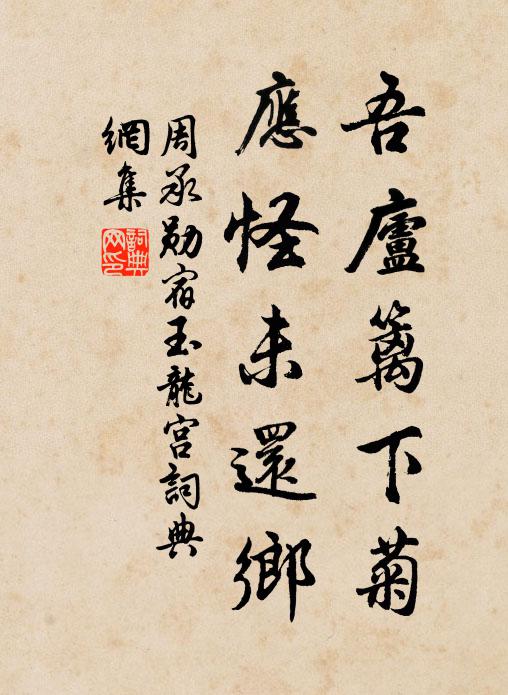 吾廬籬下菊
應怪未還鄉
周承勋宿玉龍宫詞典
網集
詞典
网印